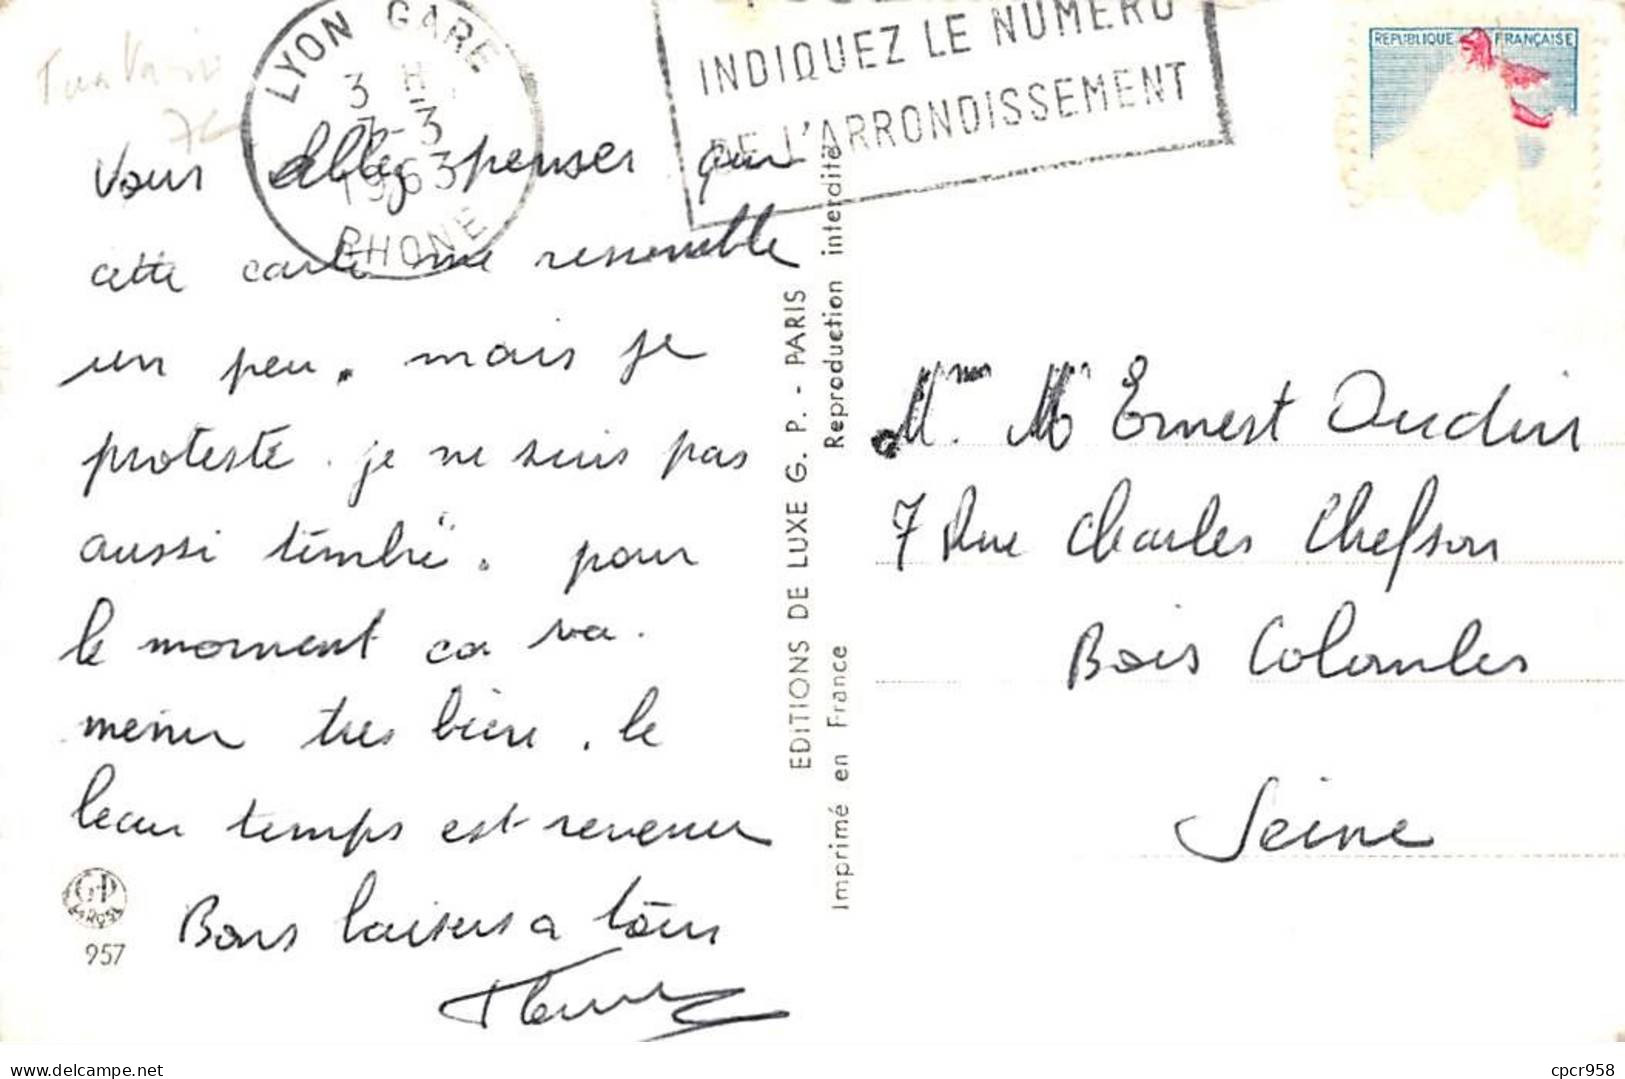 LYON GARE
3 H
7-3
1963
RHONE
INDIQUEZ LE NUMERO
DE L'ARRONDISSEMENT
REPUBLIQUE FRANÇAISE
Vous allez penser que
cette carte me ressemble
un peu. mais je
proteste. je ne suis pas
aussi timbré. pour
le moment ca va.
menu tres bien. le
beau temps est revenu
Bons baisers a tous
GP
957
EDITIONS DE LUXE G. P. - PARIS
Imprimé en France
Reproduction interdite
Mme Mr Ernest Oudin
7 Rue Charles Chefson
Bois Colombes
Seine
delcampe.net
cpcr958